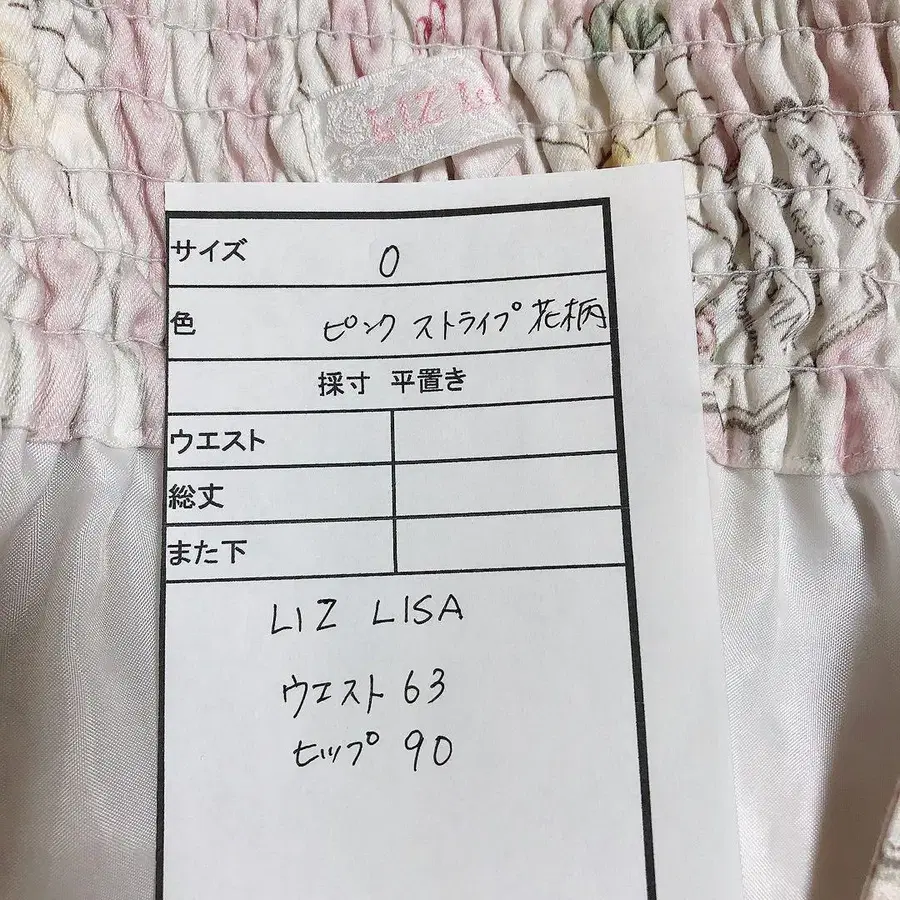 LIZ
サイズ 0
色 ピンク ストライプ 花柄
採寸 平置き
ウエスト
総丈
また下
LIZ LISA
ウエスト 63
ヒップ 90